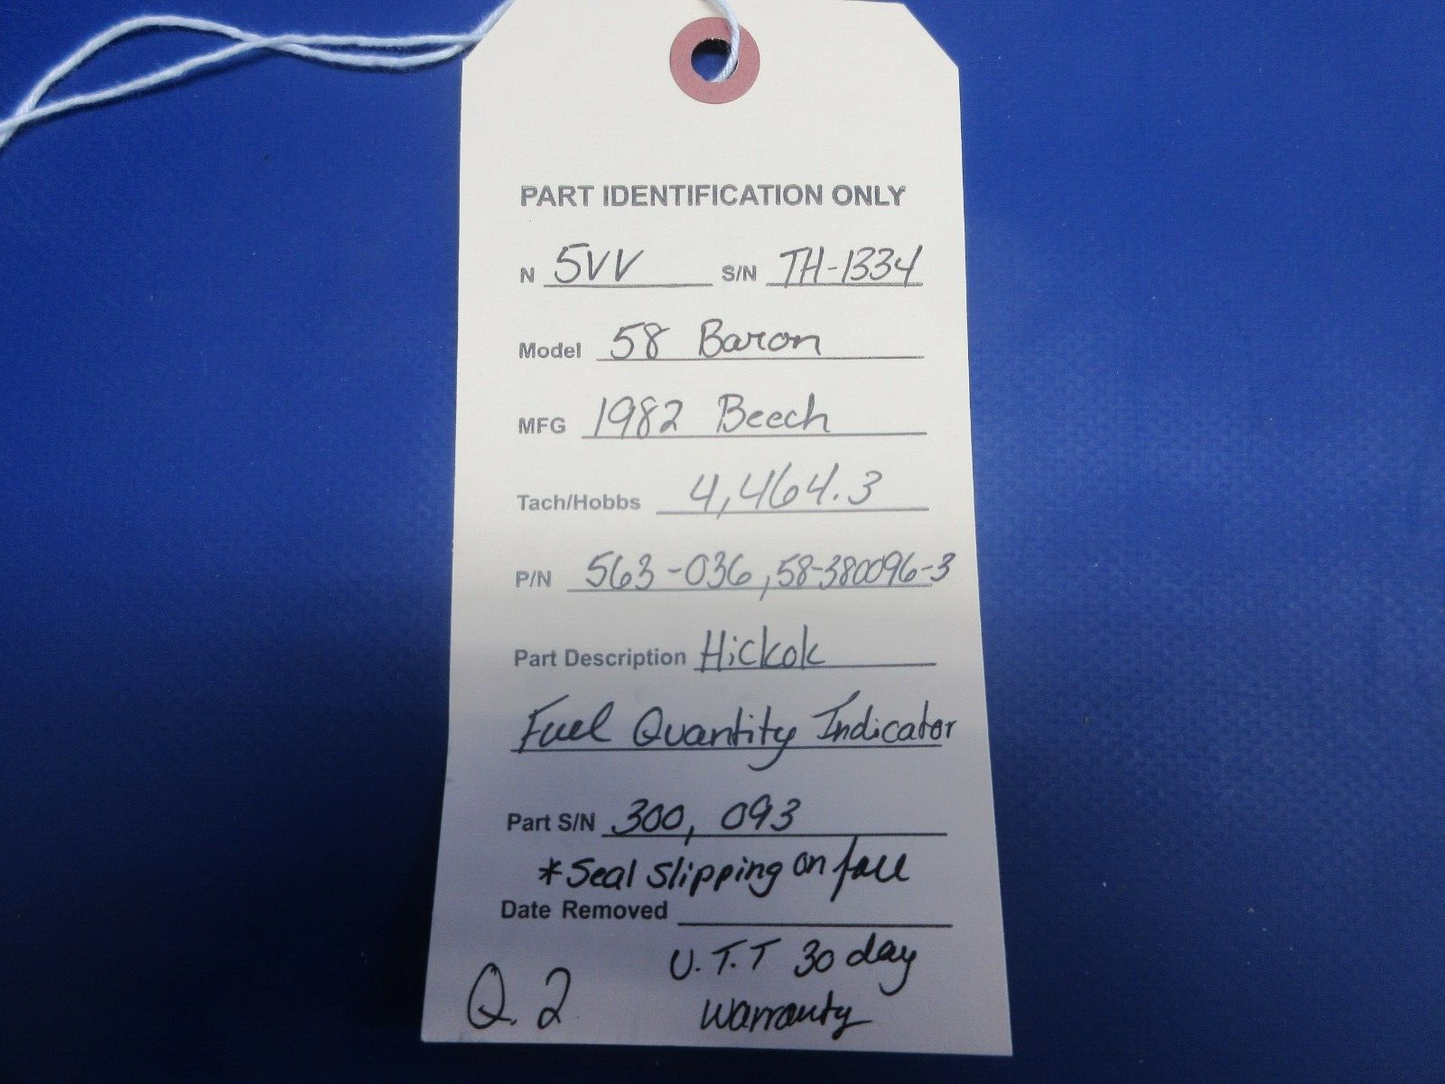 PART IDENTIFICATION ONLY
N 5VV S/N TH-1334
Model 58 Baron
MFG 1982 Beech
Tach/Hobbs 4,464.3
P/N 563-036, 58-380096-3
Part Description Hickok
Fuel Quantity Indicator
Part S/N 300, 093
*Seal slipping on face
Date Removed
U.T.T 30 day
Q. 2 warranty